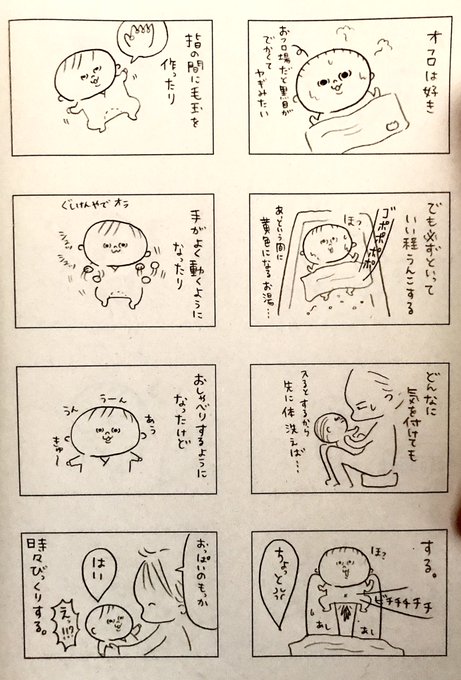 オフロは好き
おフロ場だと黒目が
でかくて
ヤギみたい
でも必ずといって
いい程うんこする
ゴポポポポポ
ほっ
あっという間に
黄色になるお湯…
どんなに
気を付けても
入るとするから
先に体洗えば…
する。
ほっ
ビチチチチチ
ちょっと
あし
あし
指の間に毛玉を
作ったり
手がよく動くように
なったり
ぐしけんやでオラ
おしゃべりするように
なったけど
あう
うーん
うん
きゅ〜
おっぱいのもっか
はい
えっ!!!?
時々びっくりする。